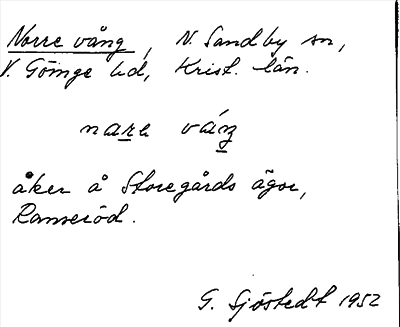 Norre vång, N. Sandby sn,
V. Göinge hd, Krist. län.
åker å Storegårds ägor,
Ramseröd.
G. Sjöstedt 1952